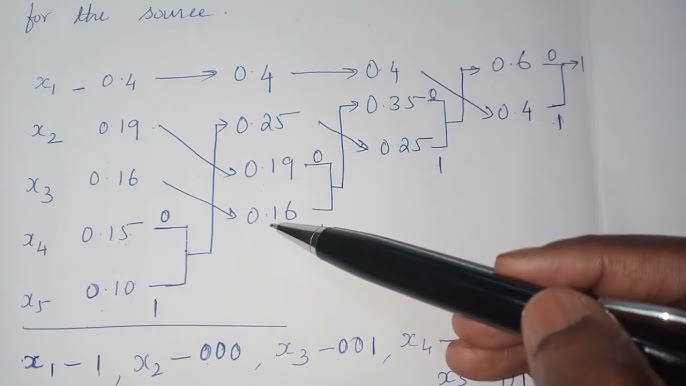 for the source.
x₁ - 0.4 → 0.4 → 0.4 0.6 0 → 1
x₂ 0.19 0.25 0.35 0 0.4 1
x₃ 0.16 0.19 0 0.25 1
x₄ 0.15 0 0.16
x₅ 0.10 1
x₁ - 1, x₂ - 000, x₃ - 001, x₄ -